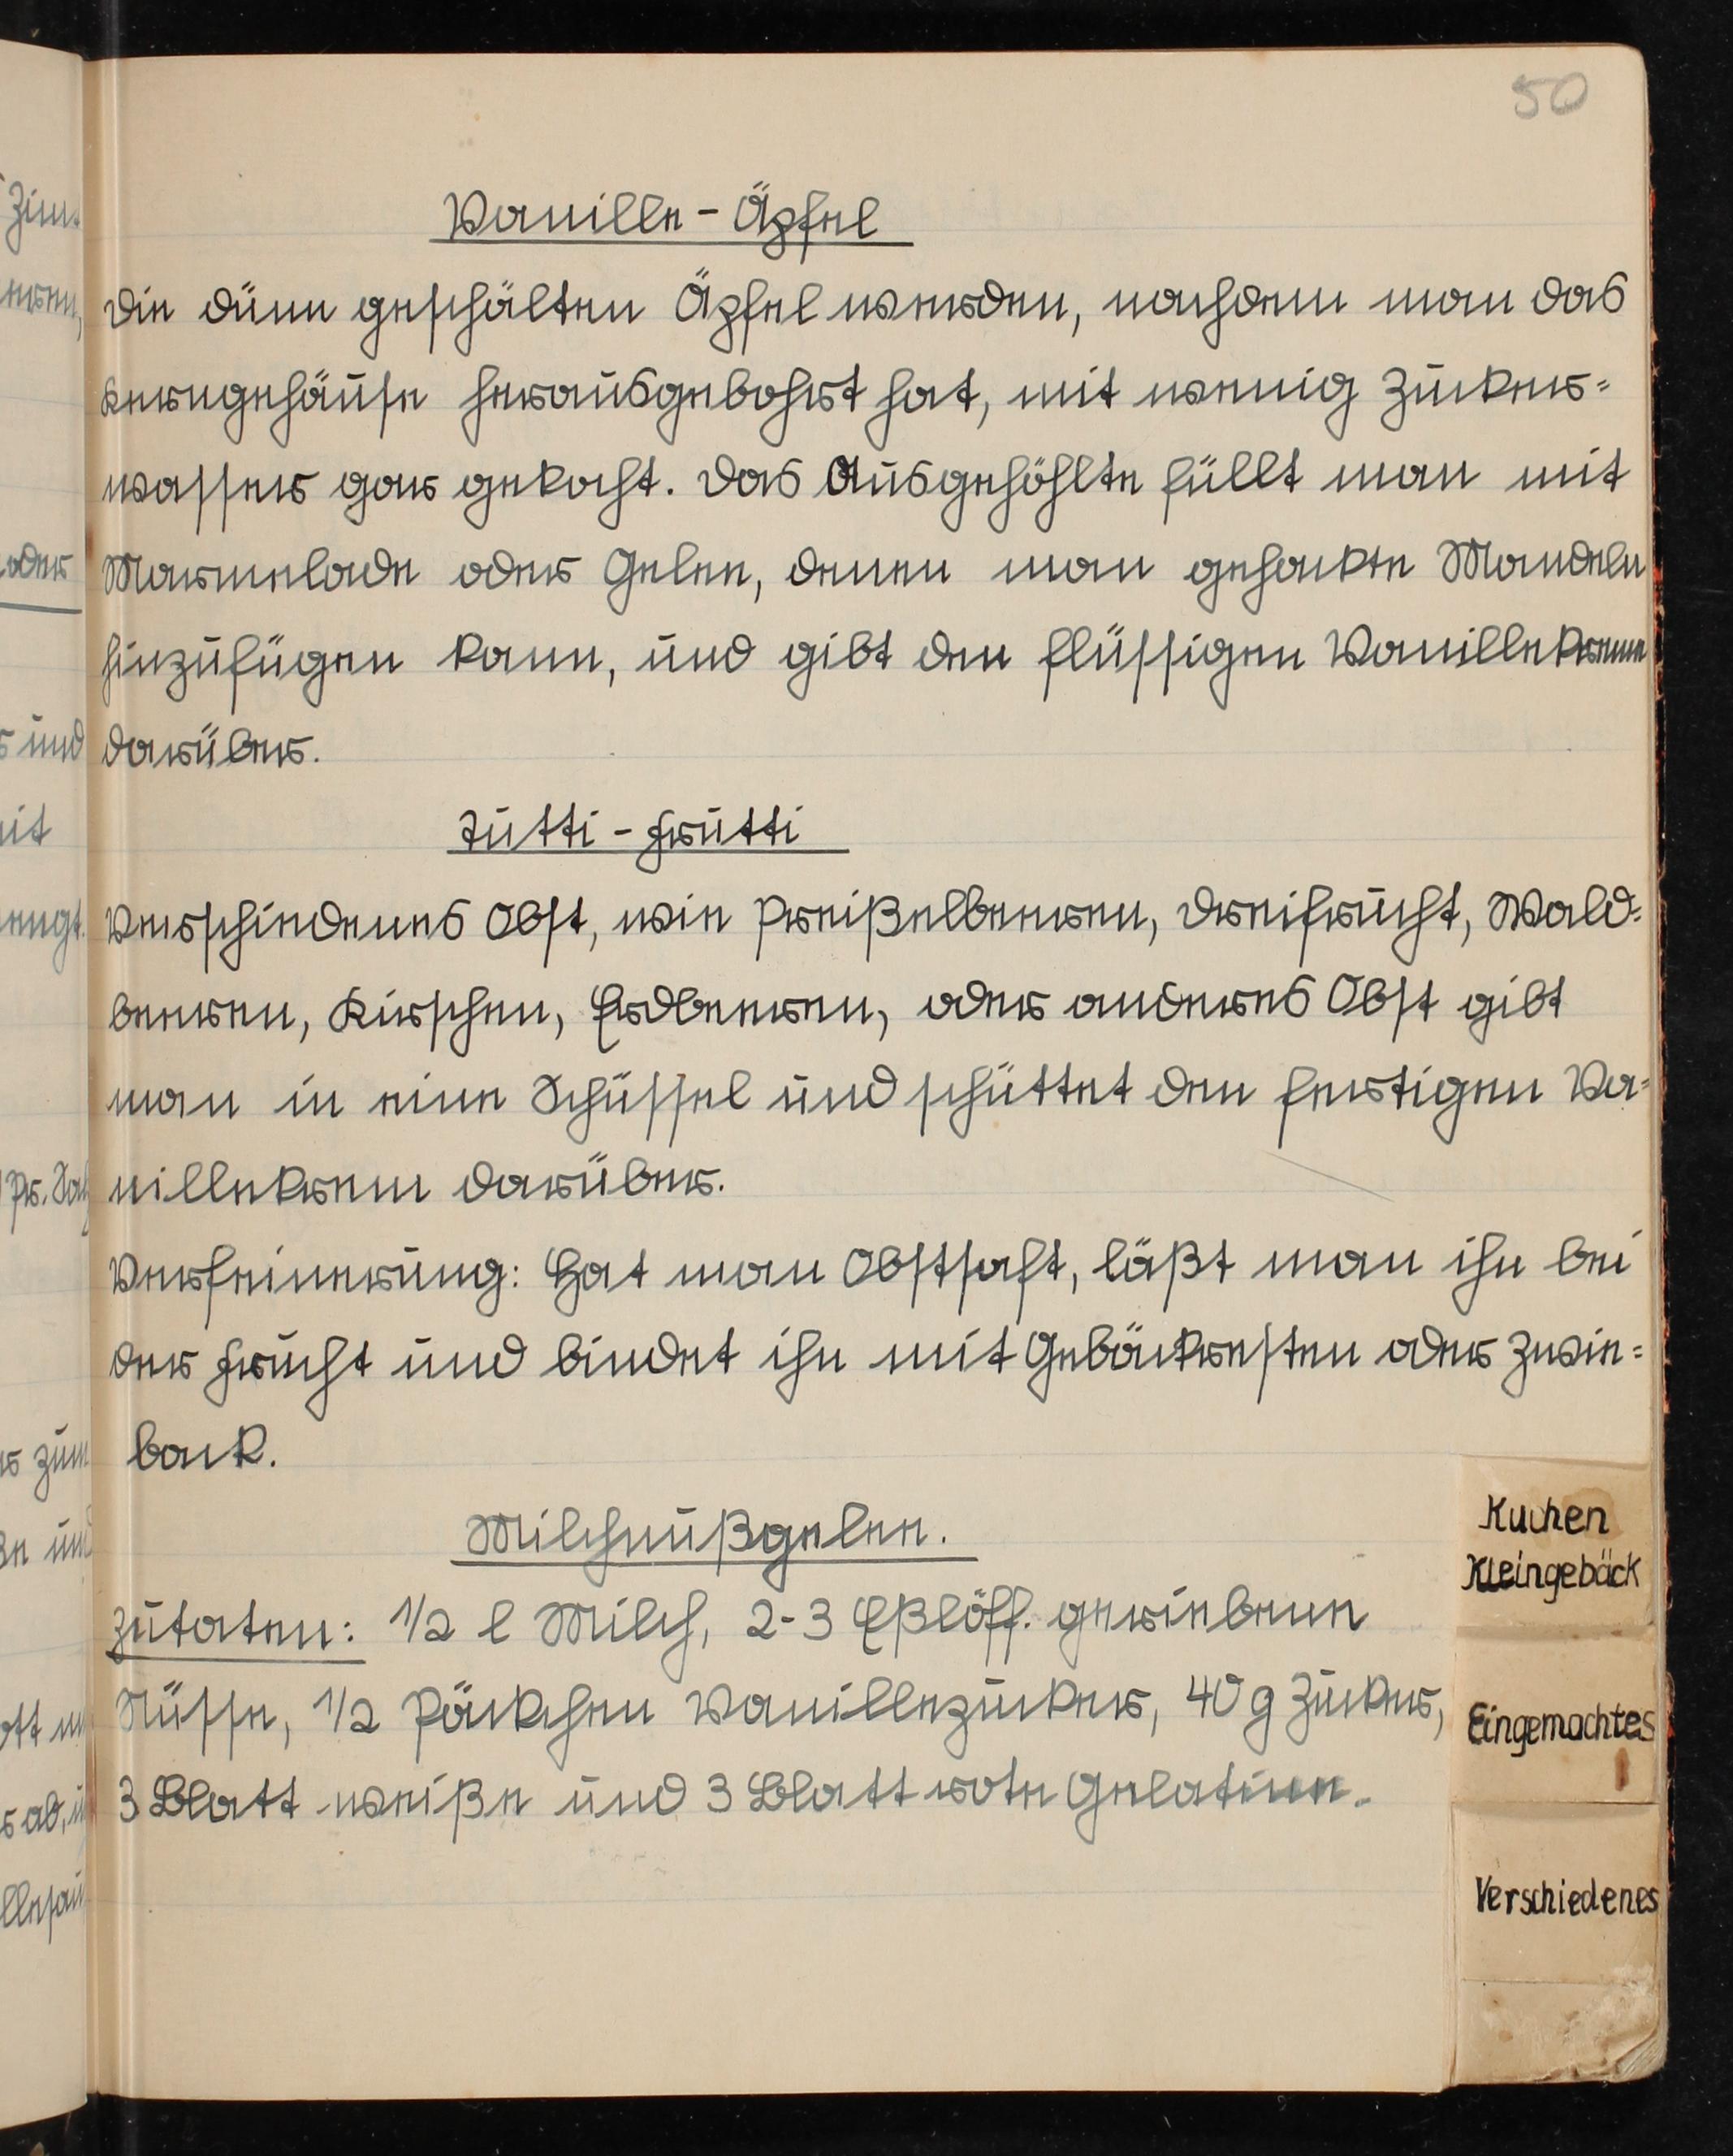 50
Vanille-Äpfel
Die dünn geschälten Äpfel werden, nachdem man das
Kerngehäuse herausgebohrt hat, mit wenig Zucker=
wasser gar gekocht. Das Ausgehöhlte füllt man mit
Marmelade oder Gelee, denen man gehackte Mandeln
hinzufügen kann, und gibt den flüssigen Vanillekrem
darüber.
Tutti-Frutti
Verschiedenes Obst, wie Preißelbeeren, Dreifrucht, Wald=
beeren, Kirschen, Erdbeeren, oder anderes Obst gibt
man in eine Schüssel und schüttet den fertigen Va=
nillekrem darüber.
Verfeinerung: Hat man Obstsaft, läßt man ihn bei
der Frucht und bindet ihn mit Gebäckresten oder Zwie=
back.
Milchnußgelee.
Zutaten: 1/2 l Milch, 2-3 Eßlöff. geriebene
Nüsse, 1/2 Päckchen Vanillezucker, 40 g Zucker,
3 Blatt weiße und 3 Blatt rote Gelatine.
Kuchen
Kleingebäck
Eingemachtes
Verschiedenes